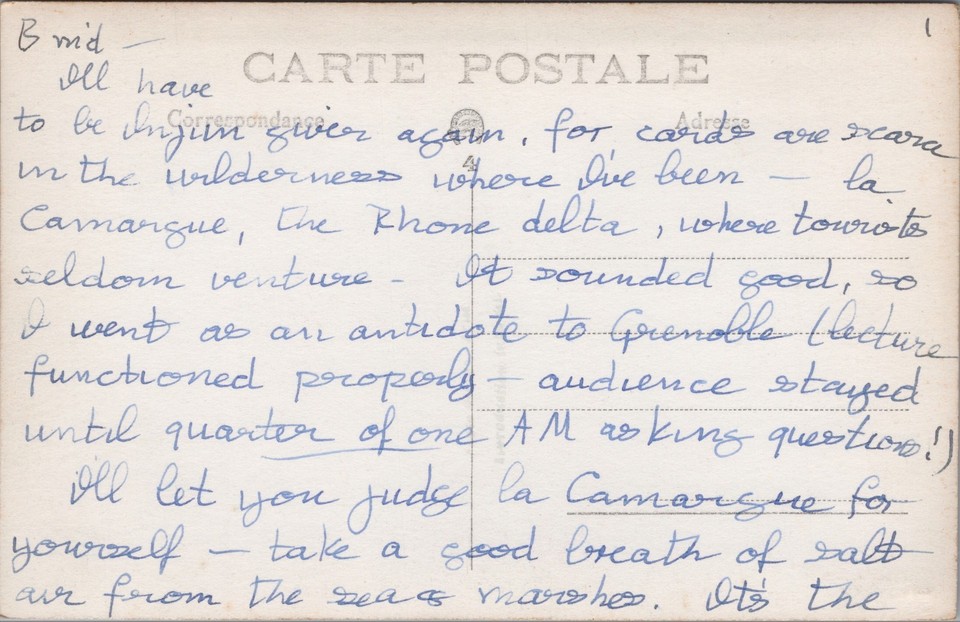 1
CARTE POSTALE
Correspondance
Adresse
4
I'll have
to be Injun giver again, for cards are scarce
in the wilderness where I've been — la
Camargue, the Rhone delta, where tourists
seldom venture - It sounded good, so
I went as an antidote to Grenoble (lecture
functioned properly — audience stayed
until quarter of one AM asking questions!)
I'll let you judge la Camargue for
yourself — take a good breath of salt
air from the sea & marshes. It's the